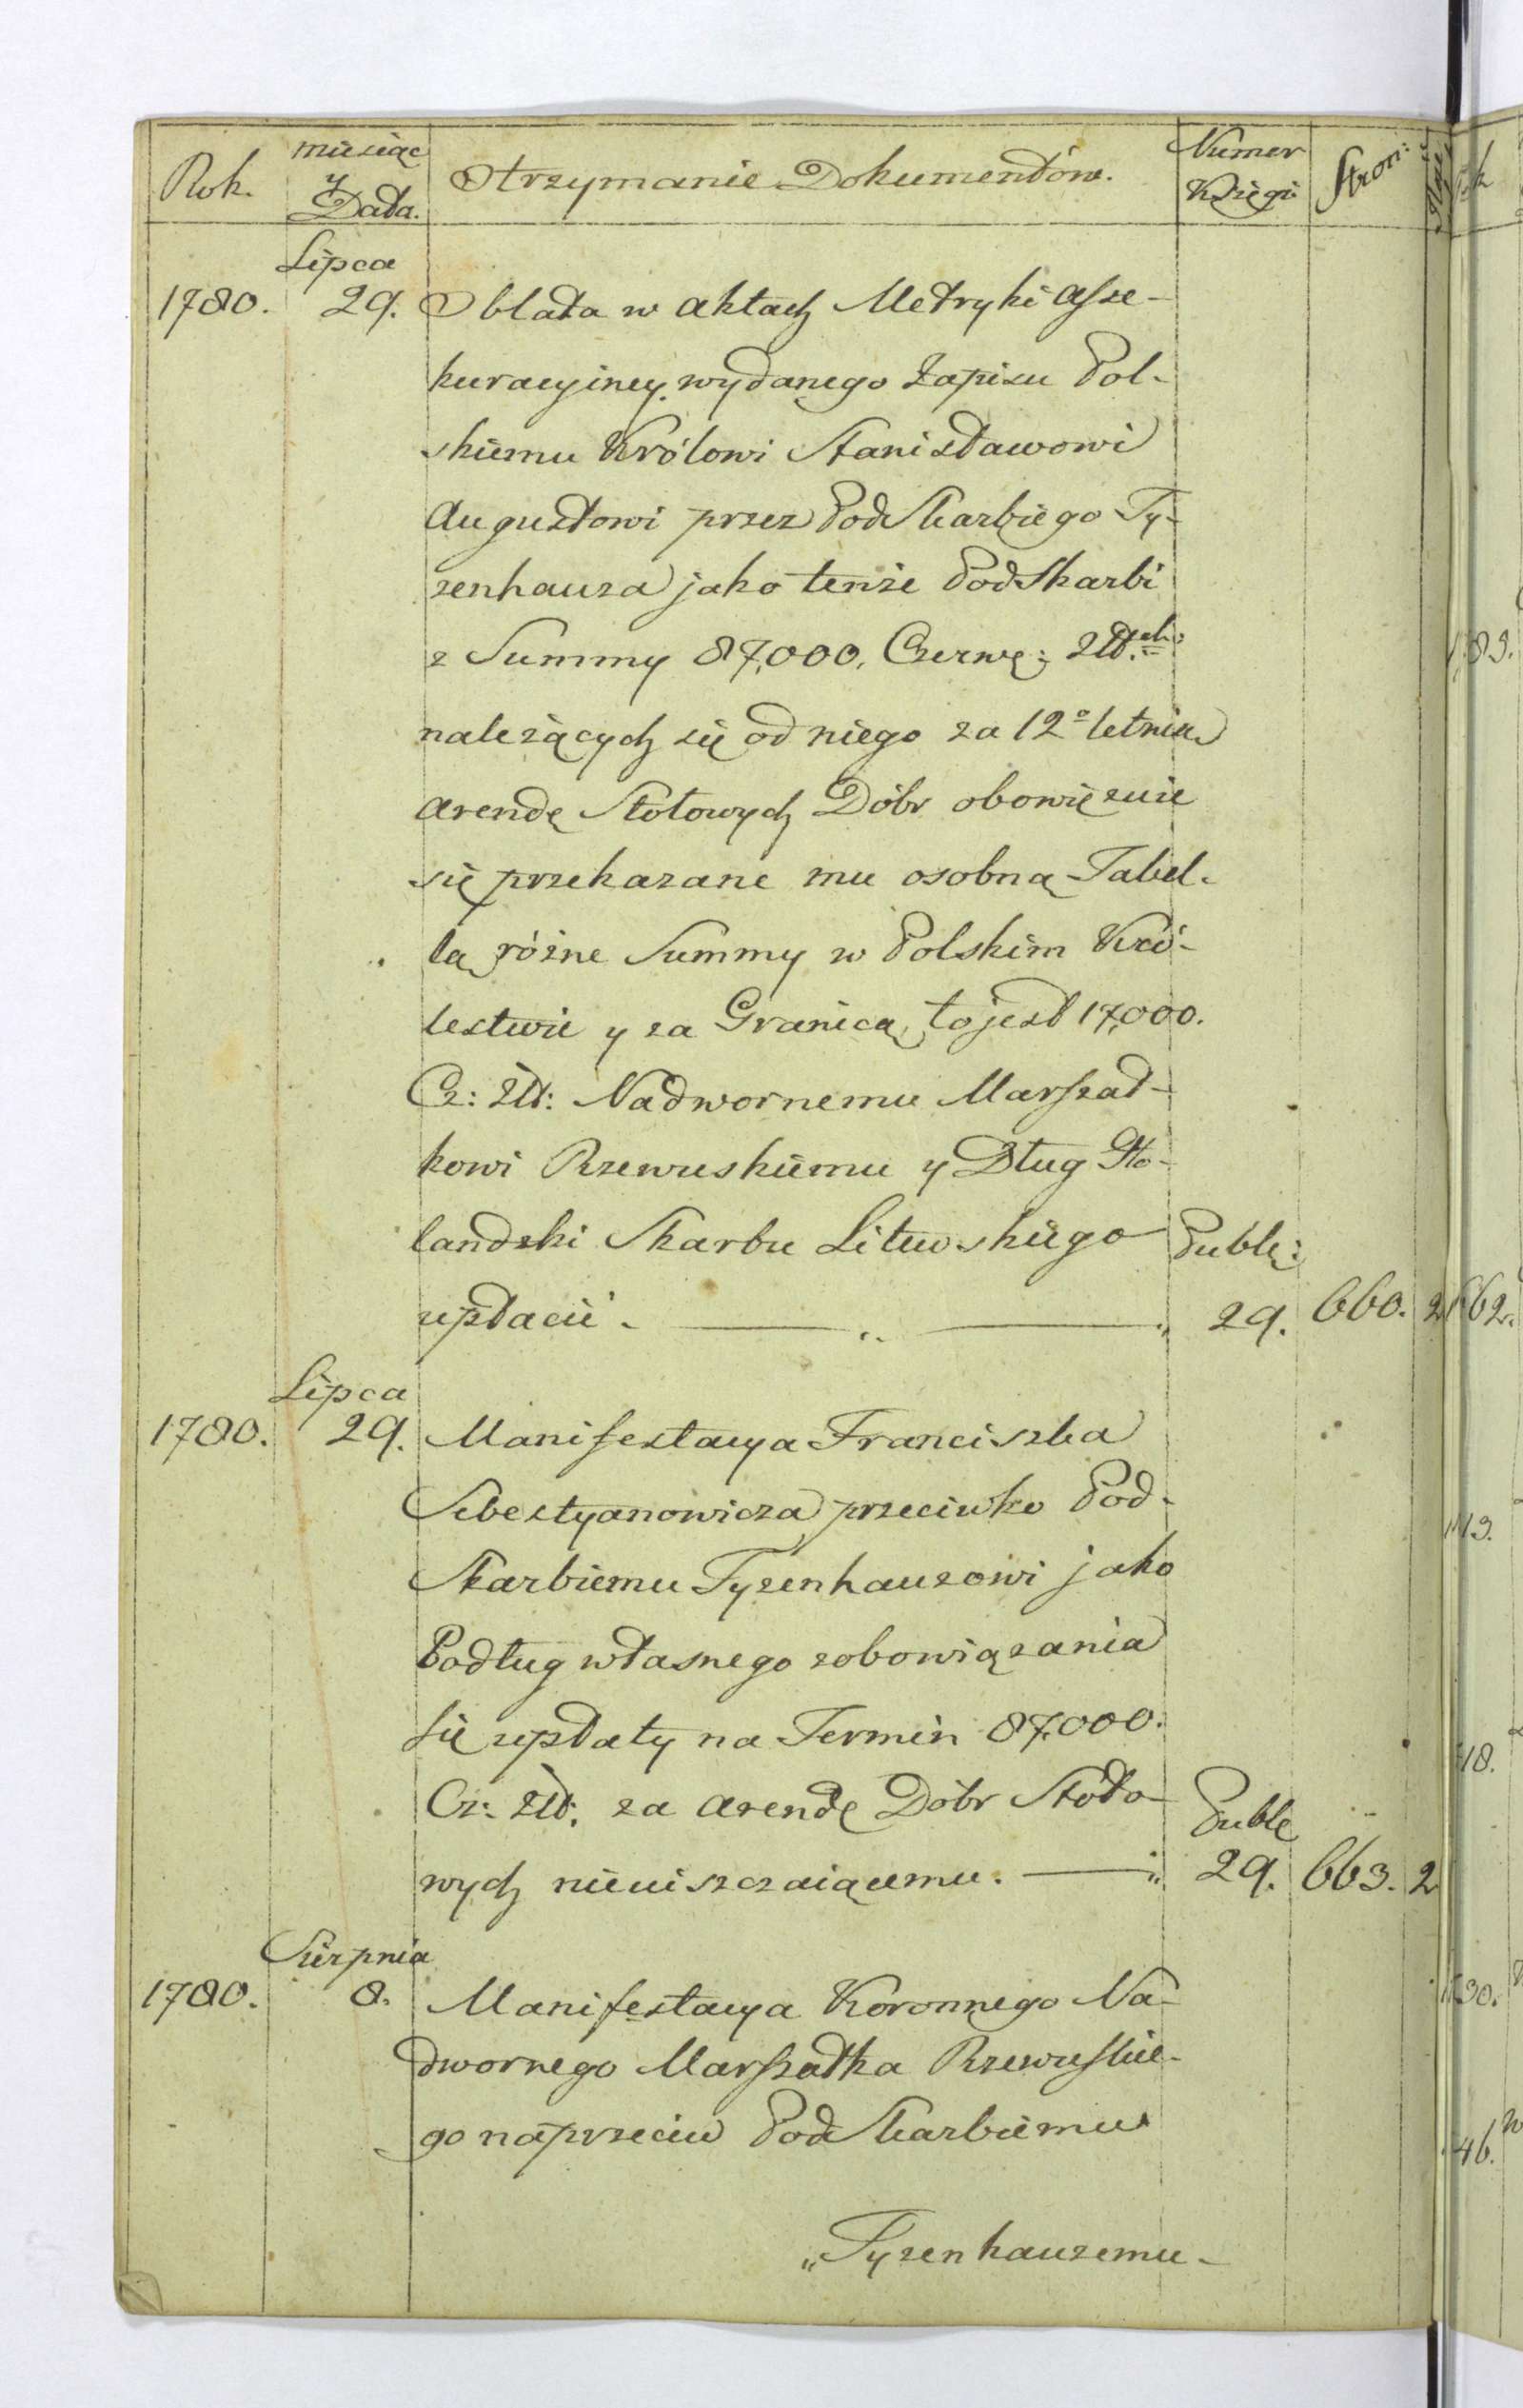 Rok. miesiąc y Data. Otrzymanie Dokumentów. Numer Księgi Stron:
Lipca
1780. 29. Oblata w Aktach Metryki Asse-
kuracyiney wydanego Zapisu Pol-
skiemu Królowi Stanisławowi
Augustowi przez PodSkarbiego Ty-
zenhauza jako tenże PodSkarbi
z Summy 87,000. Czerwo: Złt.ch
należących się od niego za 12o letnią
Arendę Stołowych Dóbr obowięzuie
się przekazane mu osobną Tabel-
lą różne Summy w Polskim Kró-
lestwie y za Granicą, to jest 17,000.
Cz: Złt: Nadwornemu Marszał-
kowi Rzewuskiemu y Dług Ho-
landzki Skarbu Litewskiego Publ:
upłacić. 29. 660. 2
Lipca
1780. 29. Manifestacya Franciszka
Sebestyanowicza przeciwko Pod-
Skarbiemu Tyzenhauzowi jako
Podług własnego zobowiązania
się upłaty na Termin 87,000.
Cz: Złt: za Arendę Dóbr Stoło- Publ
wych nieuiszczaiącemu. 29. 663. 2
Sierpnia
1780. 8. Manifestacya Koronnego Na-
dwornego Marszałka Rzewuskie-
go naprzeciw PodSkarbiemu
„Tyzenhauzemu-